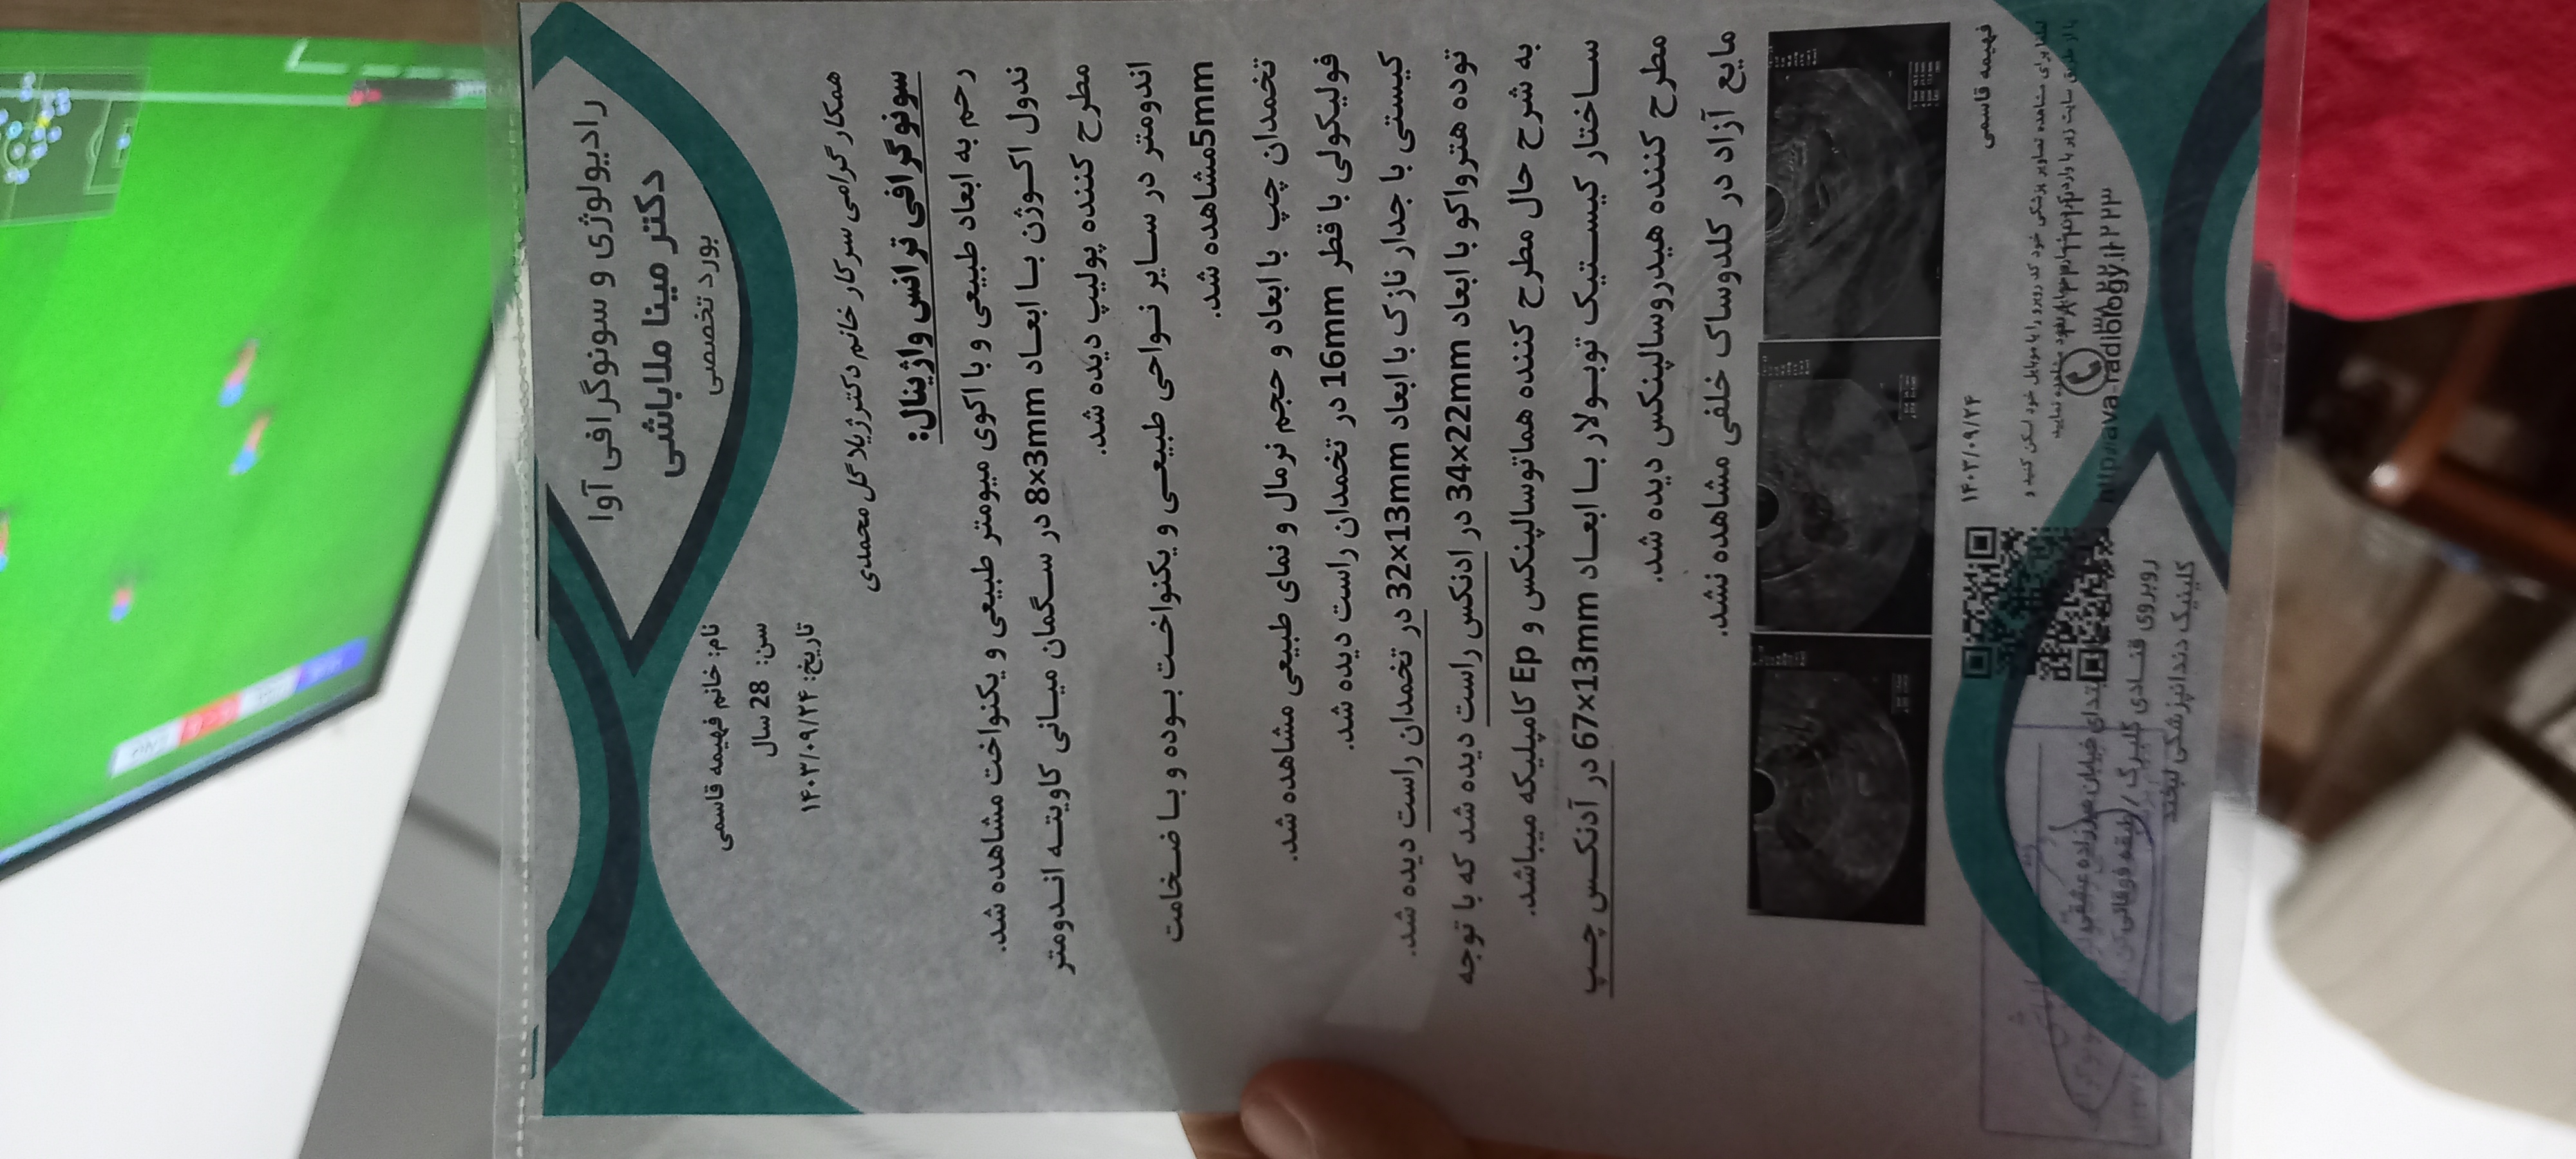 رادیولوژی و سونوگرافی آوا
دکتر مینا ملاباشی
بورد تخصصی
نام: خانم فهیمه قاسمی
سن: 28 سال
تاریخ: ۱۴۰۳/۰۹/۲۴
همکار گرامی سرکار خانم دکتر ژیلا گل محمدی
سونوگرافی ترانس واژینال:
رحم به ابعاد طبیعی و با اکوی میومتر طبیعی و یکنواخت مشاهده شد.
ندول اکوژن با ابعاد 8x3mm در سگمان میانی کاویته اندومتر
مطرح کننده پولیپ دیده شد.
اندومتر در سایر نواحی طبیعی و یکنواخت بوده و با ضخامت
5mmمشاهده شد.
تخمدان چپ با ابعاد و حجم نرمال و نمای طبیعی مشاهده شد.
فولیکولی با قطر 16mm در تخمدان راست دیده شد.
کیستی با جدار نازک با ابعاد 32x13mm در تخمدان راست دیده شد.
توده هترواکو با ابعاد 34x22mm در ادنکس راست دیده شد که با توجه
به شرح حال مطرح کننده هماتوسالپنکس و Ep کامپلیکه میباشد.
ساختار کیستیک توبولار با ابعاد 67x13mm در آدنکس چپ
مطرح کننده هیدروسالپنکس دیده شد.
مایع آزاد در کلدوساک خلفی مشاهده نشد.
فهیمه قاسمی
۱۴۰۳/۰۹/۲۴
لطفا برای مشاهده تصاویر پزشکی خود کد روبرو را با موبایل خود اسکن کنید و
یا از طریق سایت زیر با وارد کردن
مشاهده نمایید
http://ava-radiology.ir
ابتدای خیابان میرزاده عشقی
روبروی قنادی گلبرگ / طبقه فوقانی
کلینیک دندانپزشکی لبخند